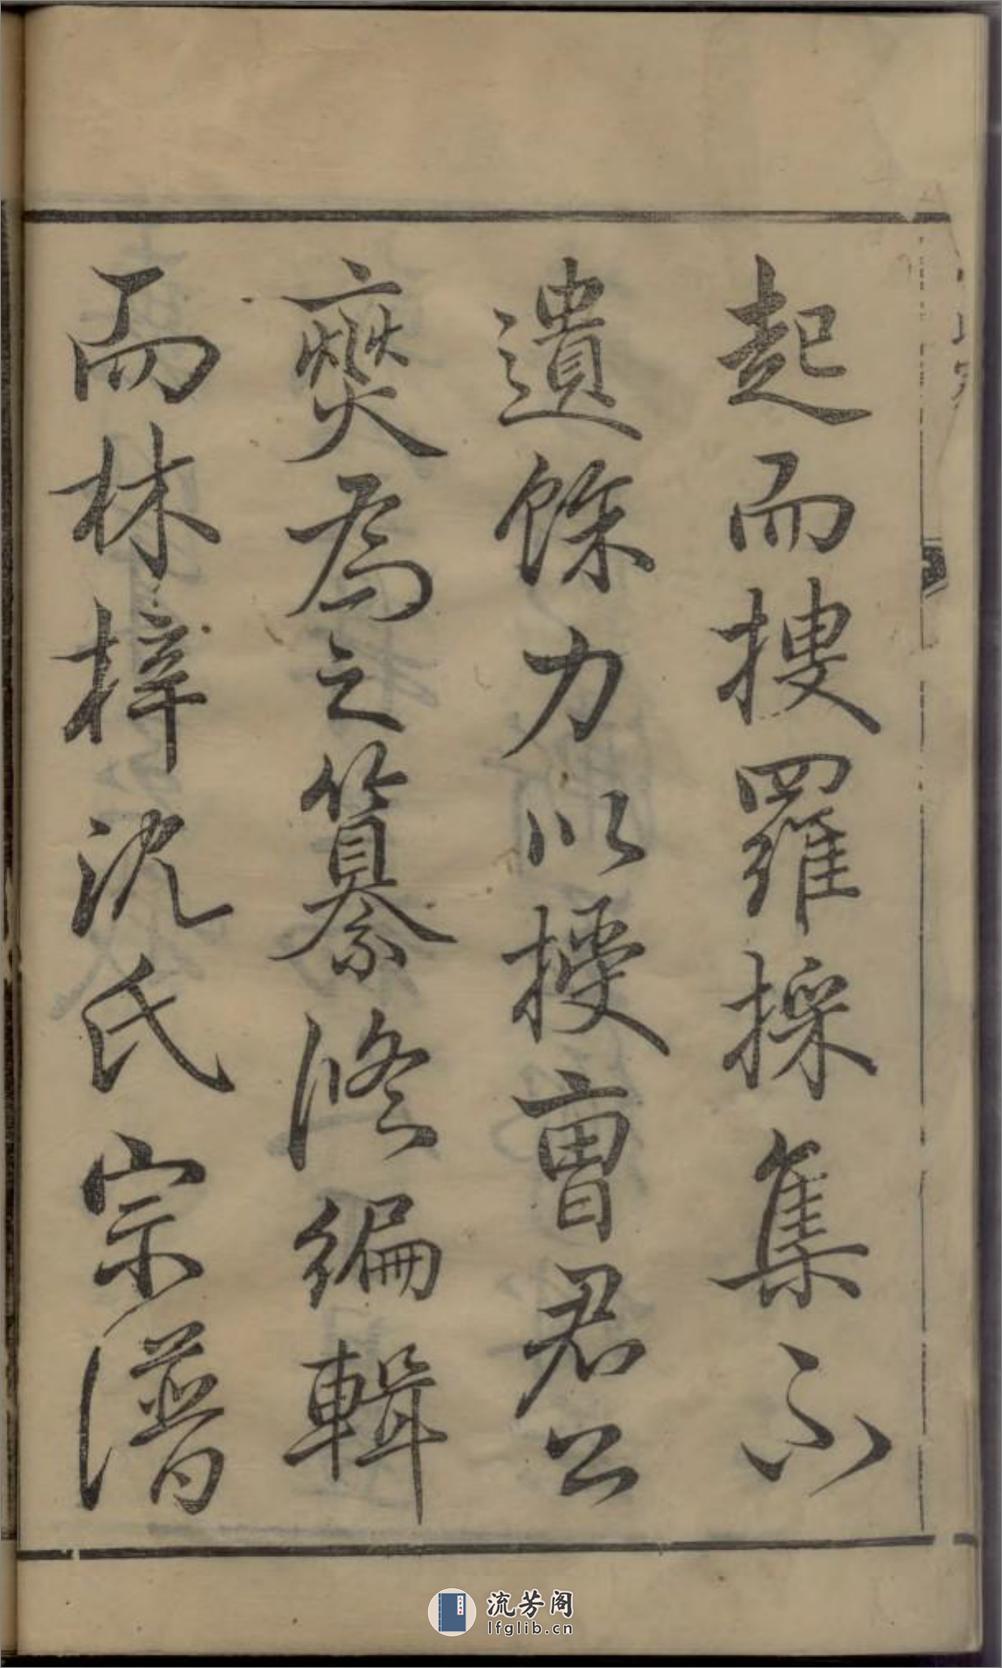 起而搜羅採集不
遺餘力以授冑君公
燮為之纂修編輯
而林梓沈氏宗譜
流芳阁
lfglib.cn